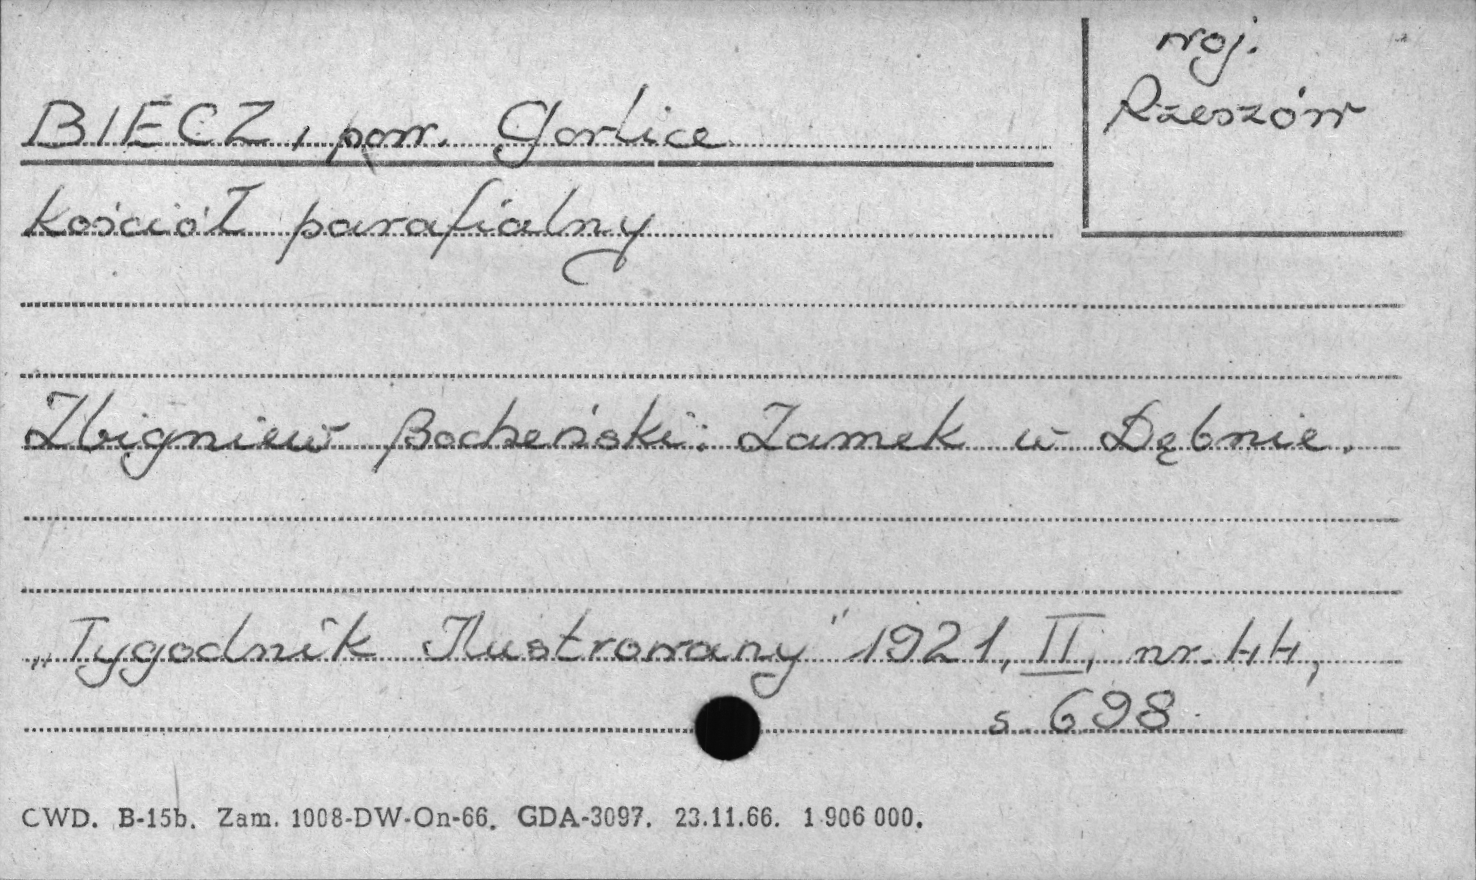 woj.
Rzeszów
BIECZ, pow. Gorlice
kościół parafialny
Zbigniew Bocheński: Zamek w Dębnie.
„Tygodnik Ilustrowany" 1921, II, nr. 44,
s. 698
CWD. B-15b. Zam. 1008-DW-On-66. GDA-3097. 23.11.66. 1 906 000.